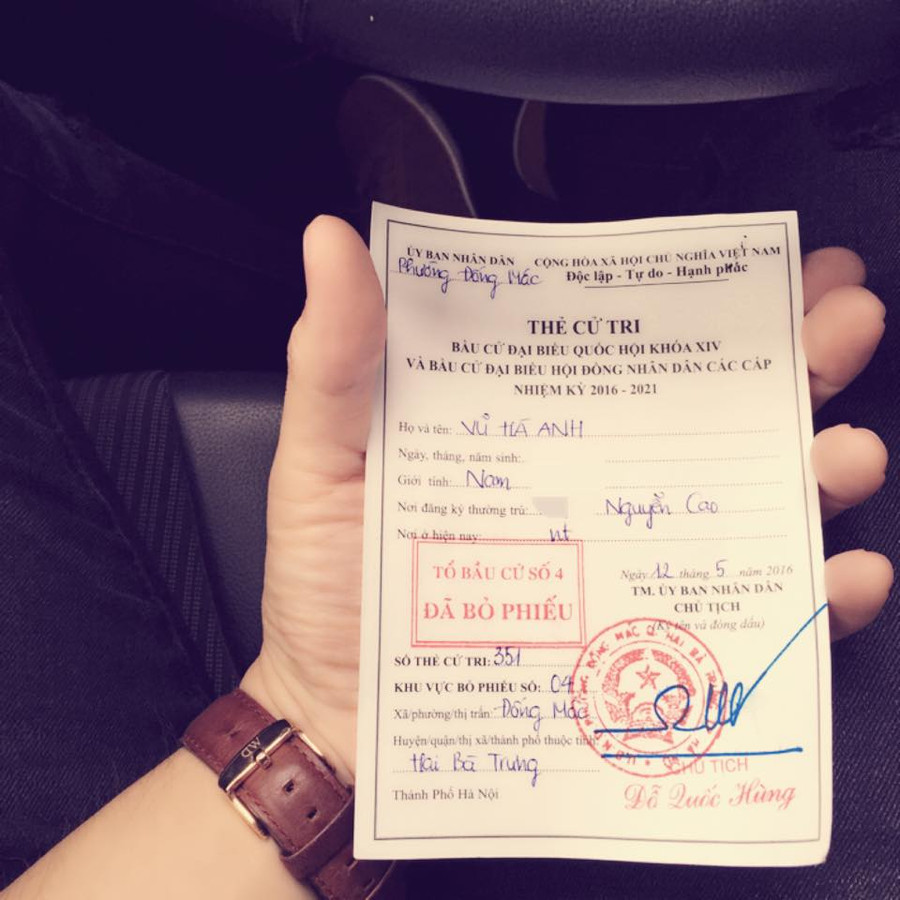 ỦY BAN NHÂN DÂN
Phường Đống Mác
CỘNG HÒA XÃ HỘI CHỦ NGHĨA VIỆT NAM
Độc lập - Tự do - Hạnh phúc
THẺ CỬ TRI
BẦU CỬ ĐẠI BIỂU QUỐC HỘI KHÓA XIV
VÀ BẦU CỬ ĐẠI BIỂU HỘI ĐỒNG NHÂN DÂN CÁC CẤP
NHIỆM KỲ 2016 - 2021
Họ và tên: VŨ HÀ ANH
Ngày, tháng, năm sinh:
Giới tính: Nam
Nơi đăng ký thường trú: Nguyễn Cao
Nơi ở hiện nay: nt
TỔ BẦU CỬ SỐ 4
ĐÃ BỎ PHIẾU
Ngày 12 tháng 5 năm 2016
TM. ỦY BAN NHÂN DÂN
CHỦ TỊCH
(Ký tên và đóng dấu)
SỐ THẺ CỬ TRI: 351
KHU VỰC BỎ PHIẾU SỐ: 04
Xã/phường/thị trấn: Đống Mác
Huyện/quận/thị xã/thành phố thuộc tỉnh:
Hai Bà Trưng
Thành Phố Hà Nội
CHỦ TỊCH
Đỗ Quốc Hùng
DW